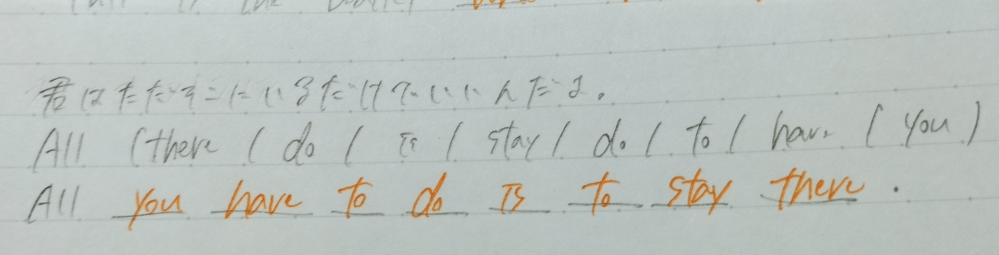 君はただそこにいるだけでいいんだよ。
All (there / do / is / stay / do / to / have / you)
All you have to do is to stay there.